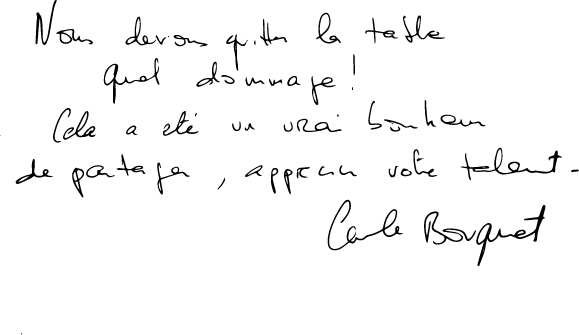 Nous devons quitter la table
Quel dommage !
Cela a été un vrai bonheur
de partager, apprécier votre talent.
Carole Bouquet